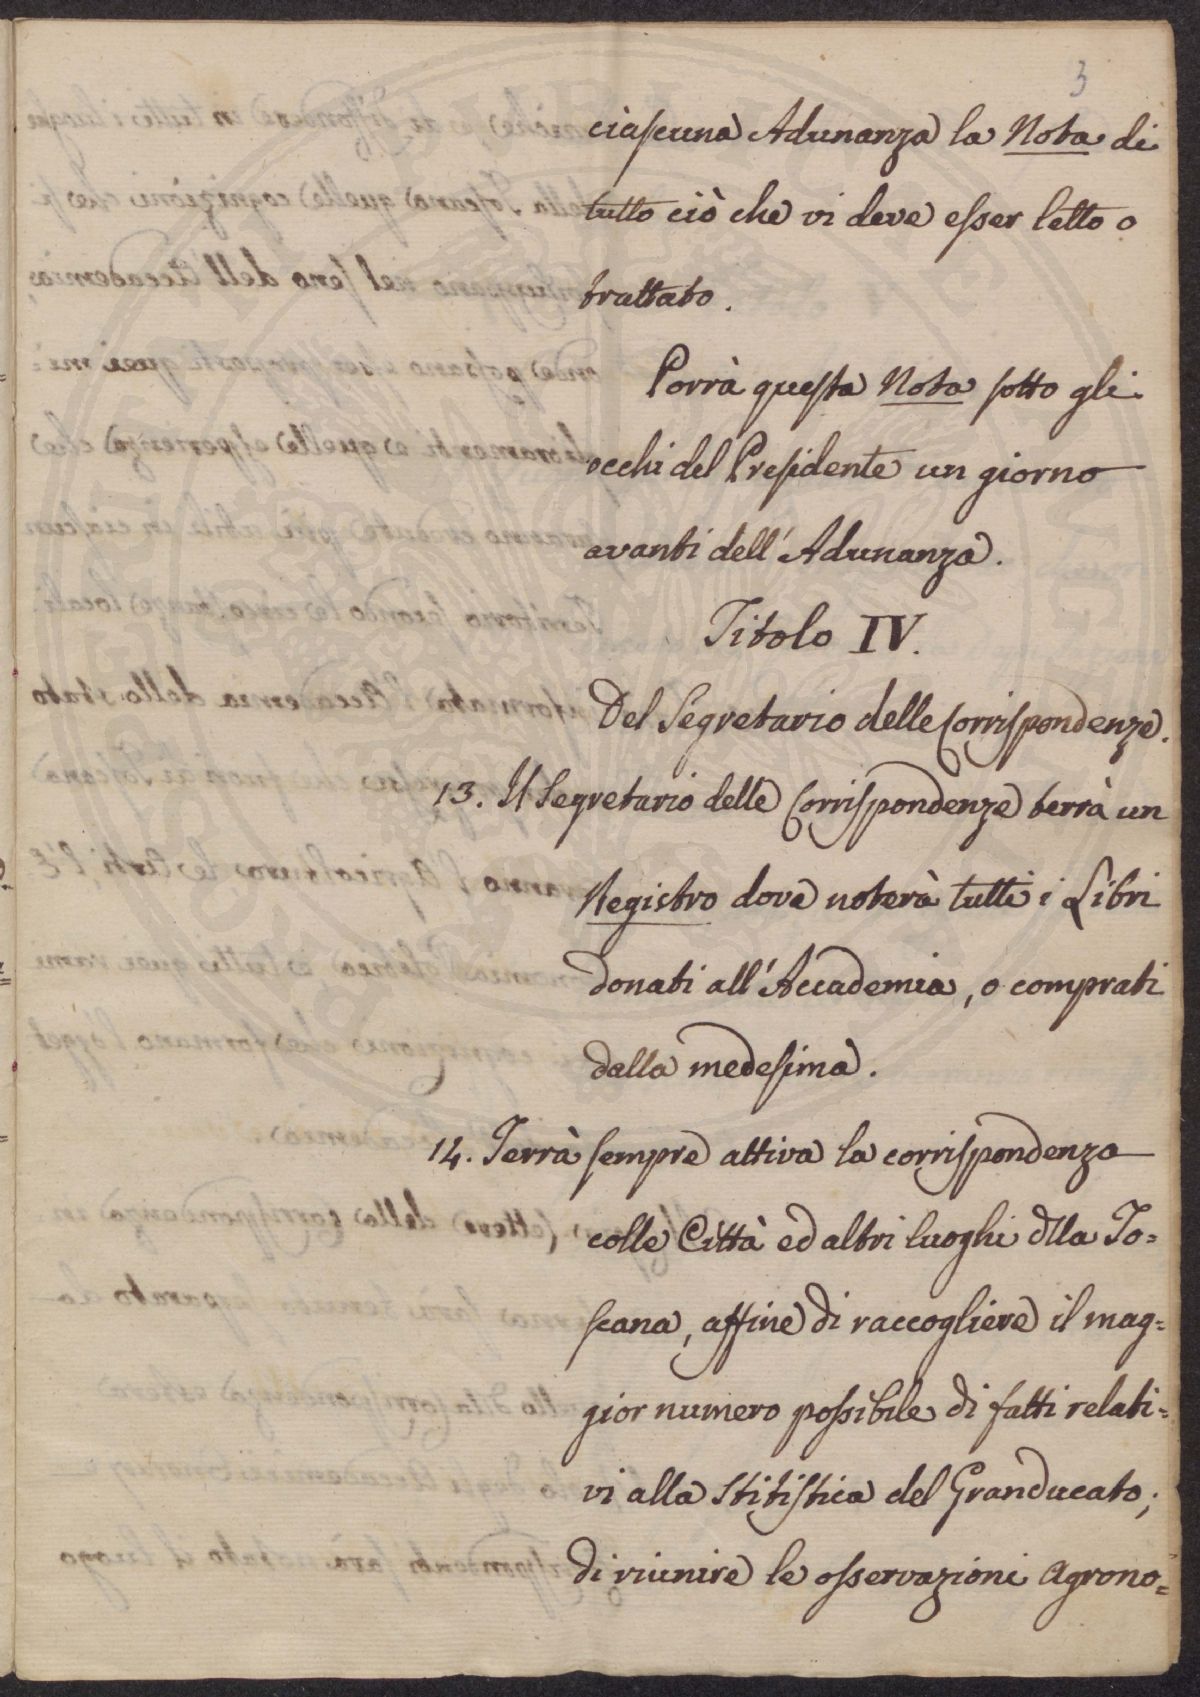 3
ciascuna Adunanza la Nota di
tutto ciò che vi deve esser letto o
trattato.
Porrà questa Nota sotto gli
occhi del Presidente un giorno
avanti dell'Adunanza.
Titolo IV.
Del Segretario delle Corrispondenze.
13. Il Segretario delle Corrispondenze terrà un
Registro dove noterà tutti i Libri
donati all'Accademia, o comprati
dalla medesima.
14. Terrà sempre attiva la corrispondenza
colle Città ed altri luoghi dlla To=
scana, affine di raccogliere il mag=
gior numero possibile di fatti relati=
vi alla Stitistica del Granducato;
di riunire le osservazioni agrono=